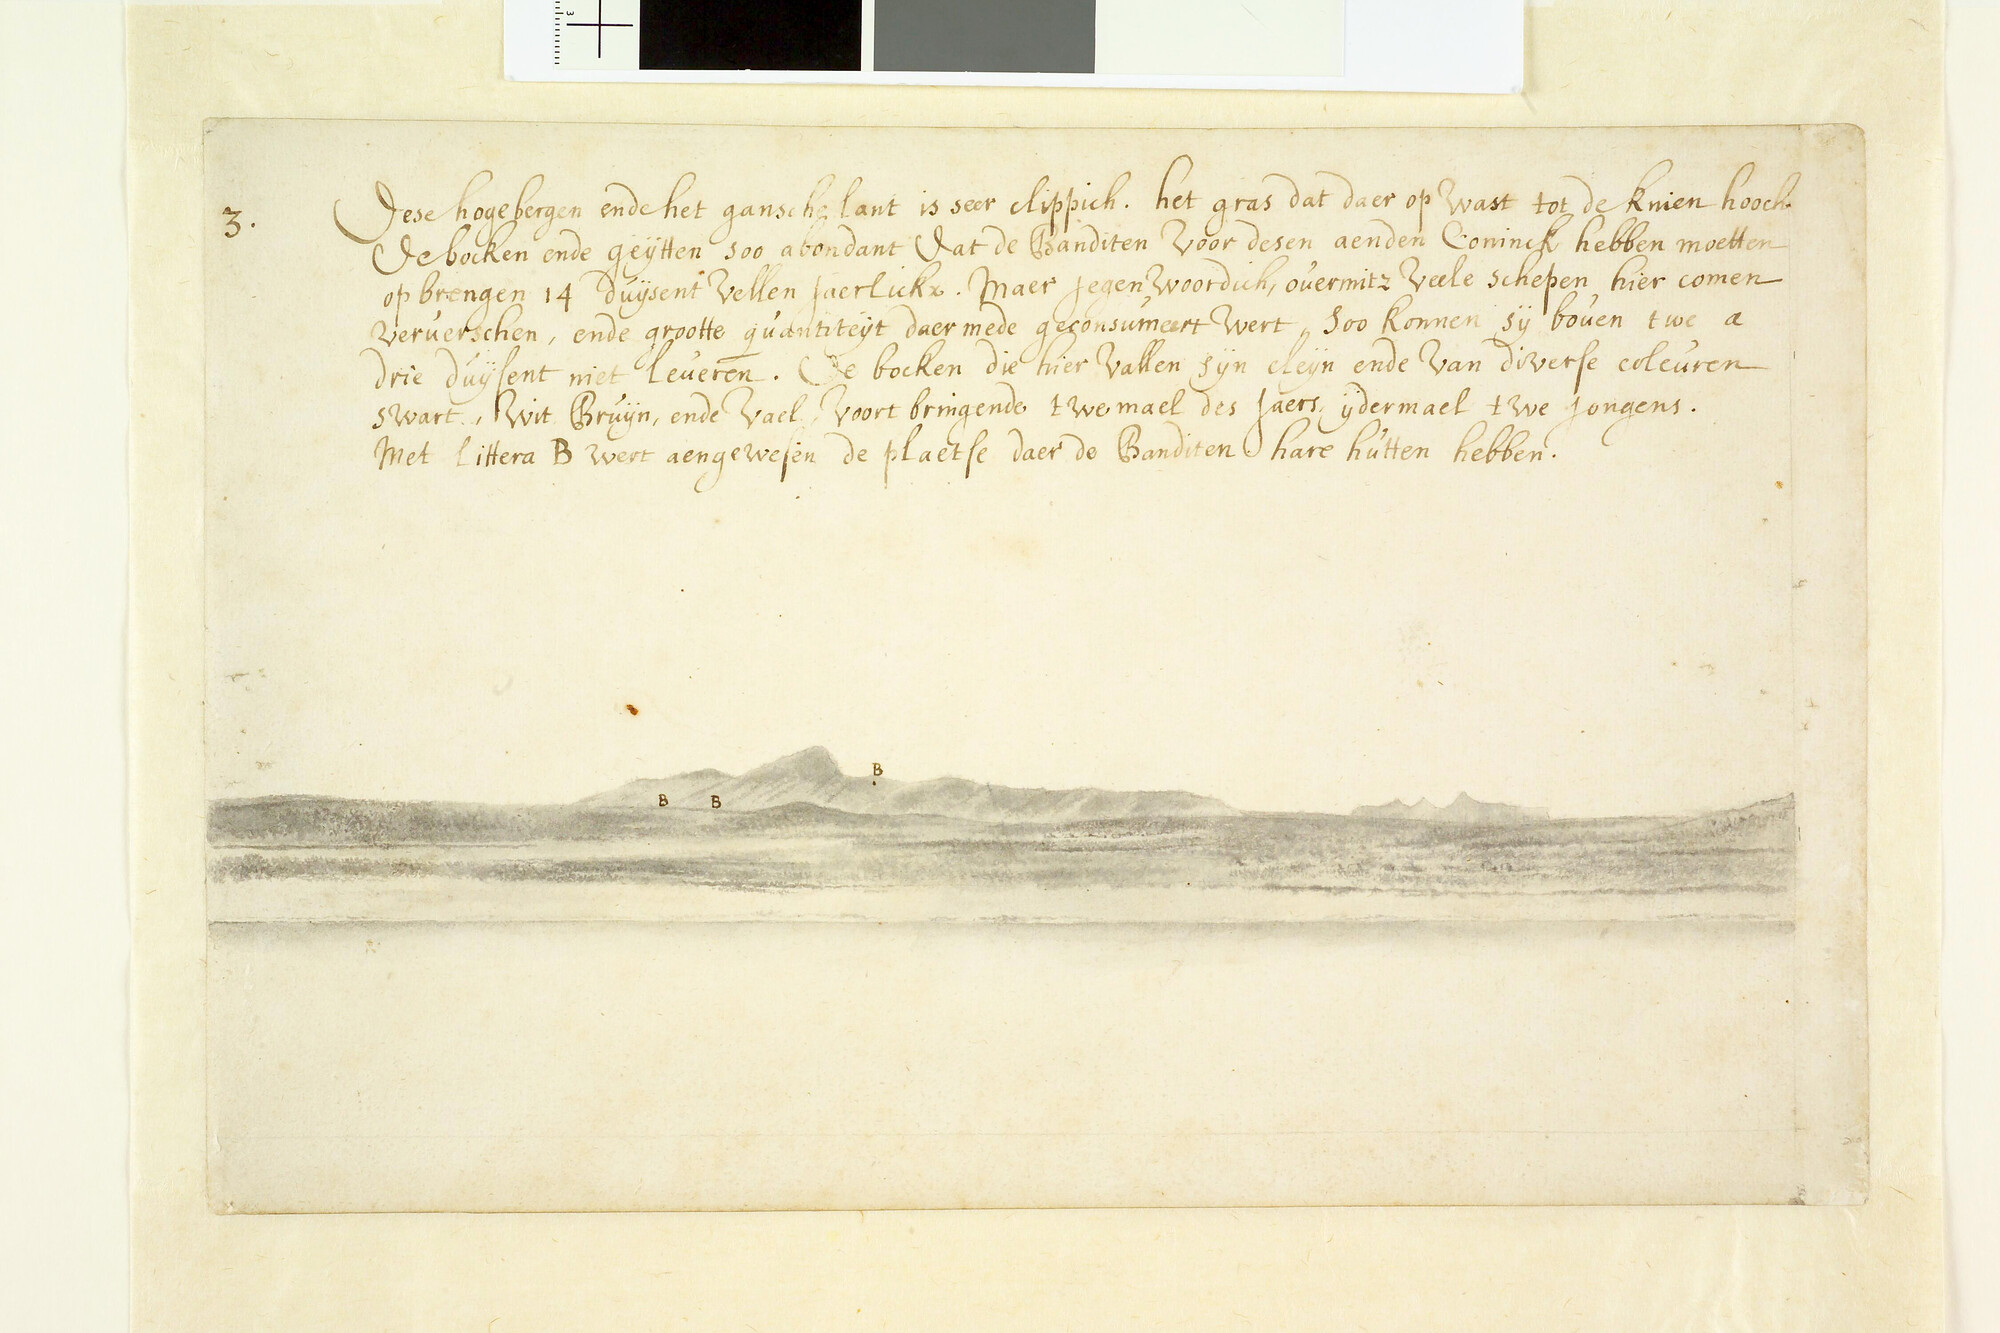 3. Dese hogebergen ende het gansche lant is seer clippich. het gras dat daer op wast tot de knien hooch.
De bocken ende geÿtten soo abondant dat de Banditen voor desen aenden Coninck hebben moetten
op brengen 14 duÿsent vellen Jaerlickx. Maer Jegenwoordich, overmitz veele schepen hier comen
ververschen, ende grootte quantiteÿt daer mede geconsumeert wert, soo konnen sÿ boven twe a
drie duÿsent niet leveren. De bocken die hier vallen sÿn cleÿn ende van diverse coleuren
swart, wit Bruÿn, ende vael, voort bringende twemael des Jaers, ÿdermael twe Jongens.
Met littera B wert aengewesen de plaetse daer de Banditen hare hutten hebben.
B
B B